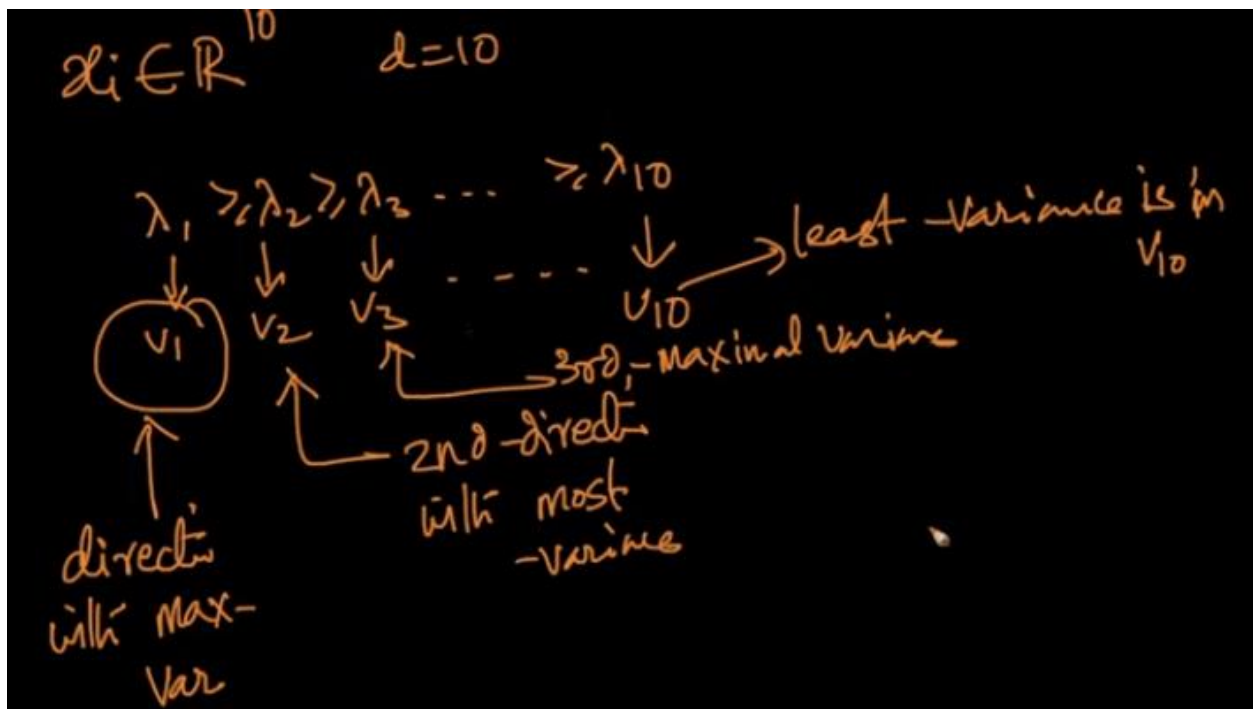 xi ∈ ℝ¹⁰ d=10
λ₁ ≥ λ₂ ≥ λ₃ ---- ≥ λ₁₀
v₁ v₂ v₃ ----- v₁₀
least -variance is in
v₁₀
3rd,-maximal variance
2nd-directi
with most
-variance
directi
with max-
var